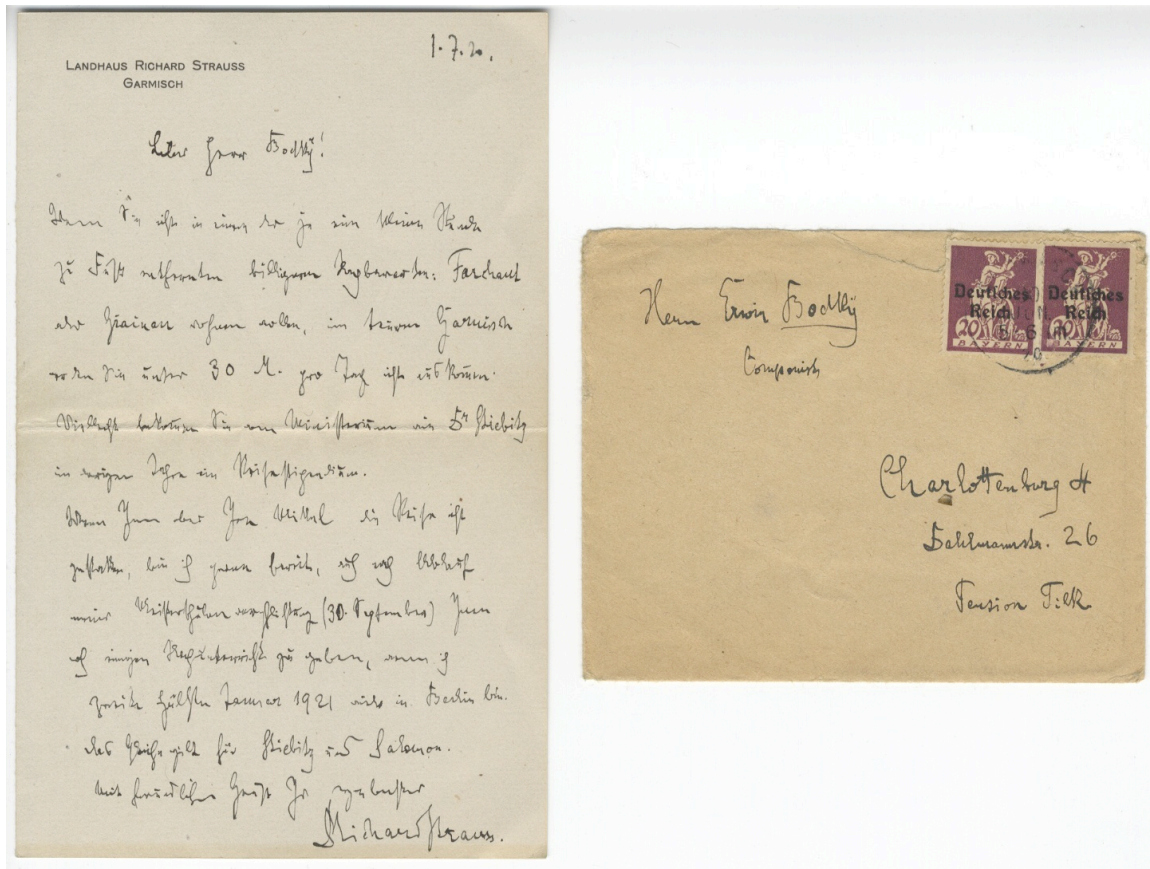 LANDHAUS RICHARD STRAUSS
GARMISCH
1.7.20.
Lieber Herr Bodky!
Wenn Sie nicht in einem der je eine kleine Stunde
zu Fuß entfernten billigeren Nachbarorten: Farchant
oder Grainau wohnen wollen, im teuren Garmisch
werden Sie unter 30 M. pro Tag nicht auskommen.
Vielleicht bekommen Sie vom Ministerium wie Dr Stiebitz
im vorigen Jahre ein Reisestipendium.
Wenn Ihnen aber Ihre Mittel die Reise nicht
gestatten, bin ich gerne bereit, auch nach Ablauf
meiner Meisterschulenverpflichtung (30. September) Ihnen
noch einigen Nachunterricht zu geben, wenn ich
zweite Hälfte Januar 1921 wieder in Berlin bin.
Das Gleiche gilt für Stiebitz und Salomon.
Mit freundlichen Grüßen Ihr ergebenster
Richard Strauss.
Herrn Erwin Bodky
Componist
Charlottenburg 4
Dahlmannstr. 26
Pension Tilk
Deutsches Reich
20
BAYERN
Deutsches Reich
20
BAYERN